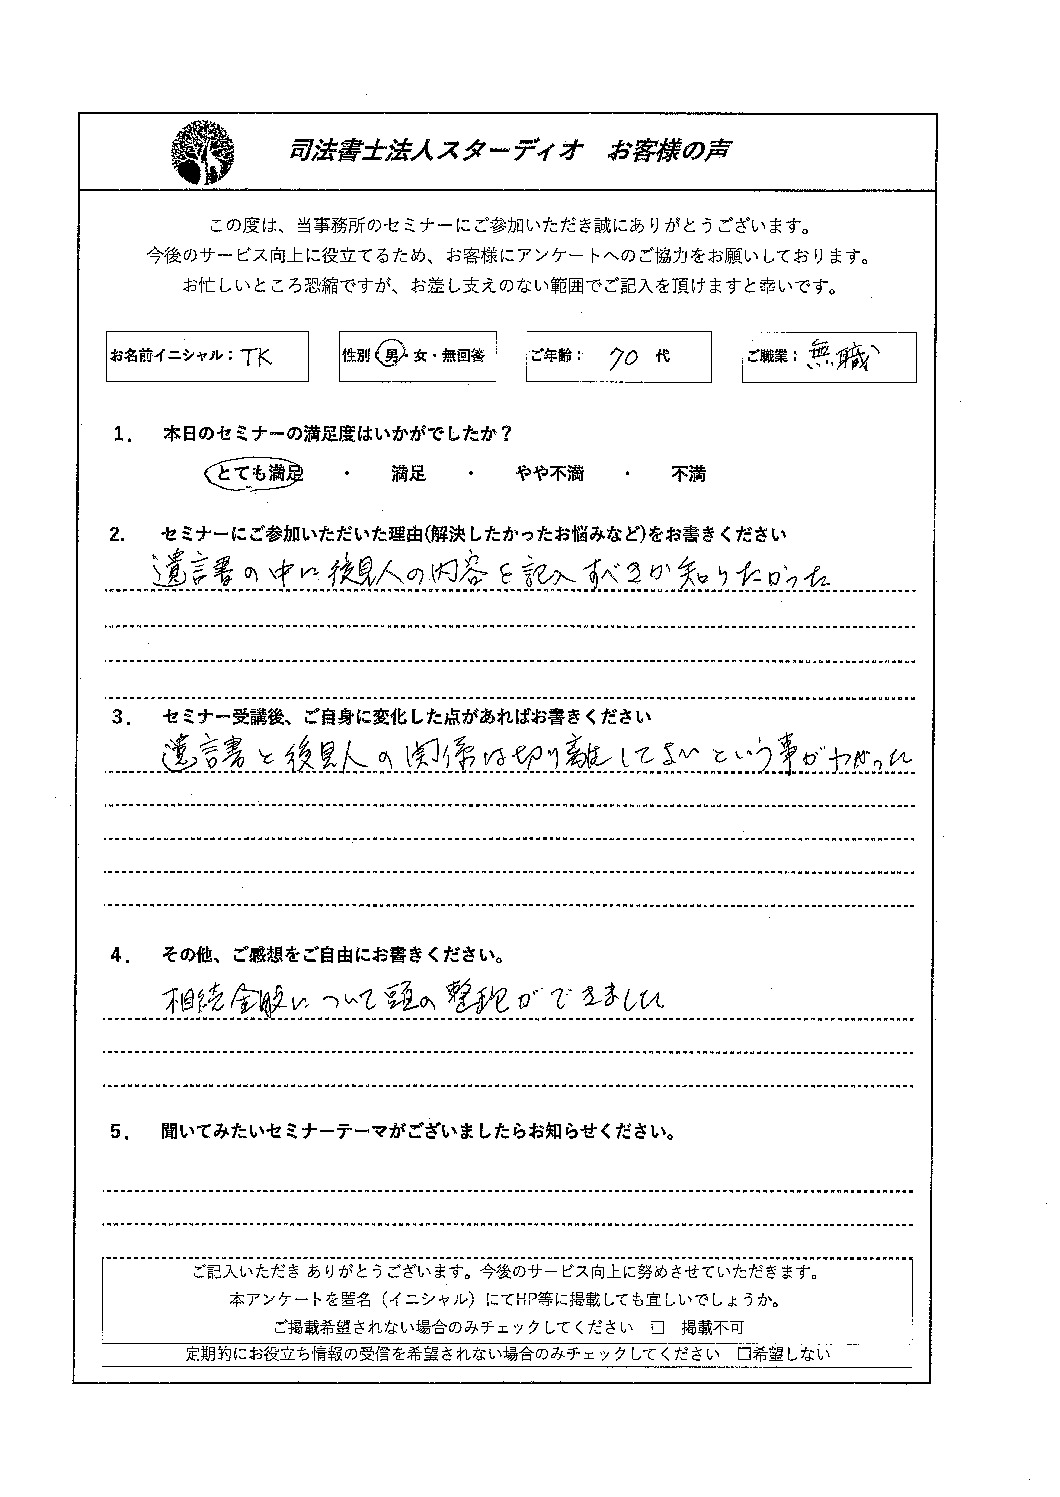 司法書士法人スターディオ　お客様の声
この度は、当事務所のセミナーにご参加いただき誠にありがとうございます。
今後のサービス向上に役立てるため、お客様にアンケートへのご協力をお願いしております。
お忙しいところ恐縮ですが、お差し支えのない範囲でご記入を頂けますと幸いです。
お名前イニシャル：TK　性別　男・女・無回答　ご年齢：　70　代　ご職業：無職
1．　本日のセミナーの満足度はいかがでしたか？
とても満足　・　満足　・　やや不満　・　不満
2．　セミナーにご参加いただいた理由(解決したかったお悩みなど)をお書きください
遺言書の中に後見人の内容を記入すべきか知りたかった
3．　セミナー受講後、ご自身に変化した点があればお書きください
遺言書と後見人の関係は切り離してよいという事がわかった
4．　その他、ご感想をご自由にお書きください。
相続全般について頭の整理ができました
5．　聞いてみたいセミナーテーマがございましたらお知らせください。
ご記入いただき ありがとうございます。今後のサービス向上に努めさせていただきます。
本アンケートを匿名（イニシャル）にてHP等に掲載しても宜しいでしょうか。
ご掲載希望されない場合のみチェックしてください　□　掲載不可
定期的にお役立ち情報の受信を希望されない場合のみチェックしてください　□希望しない